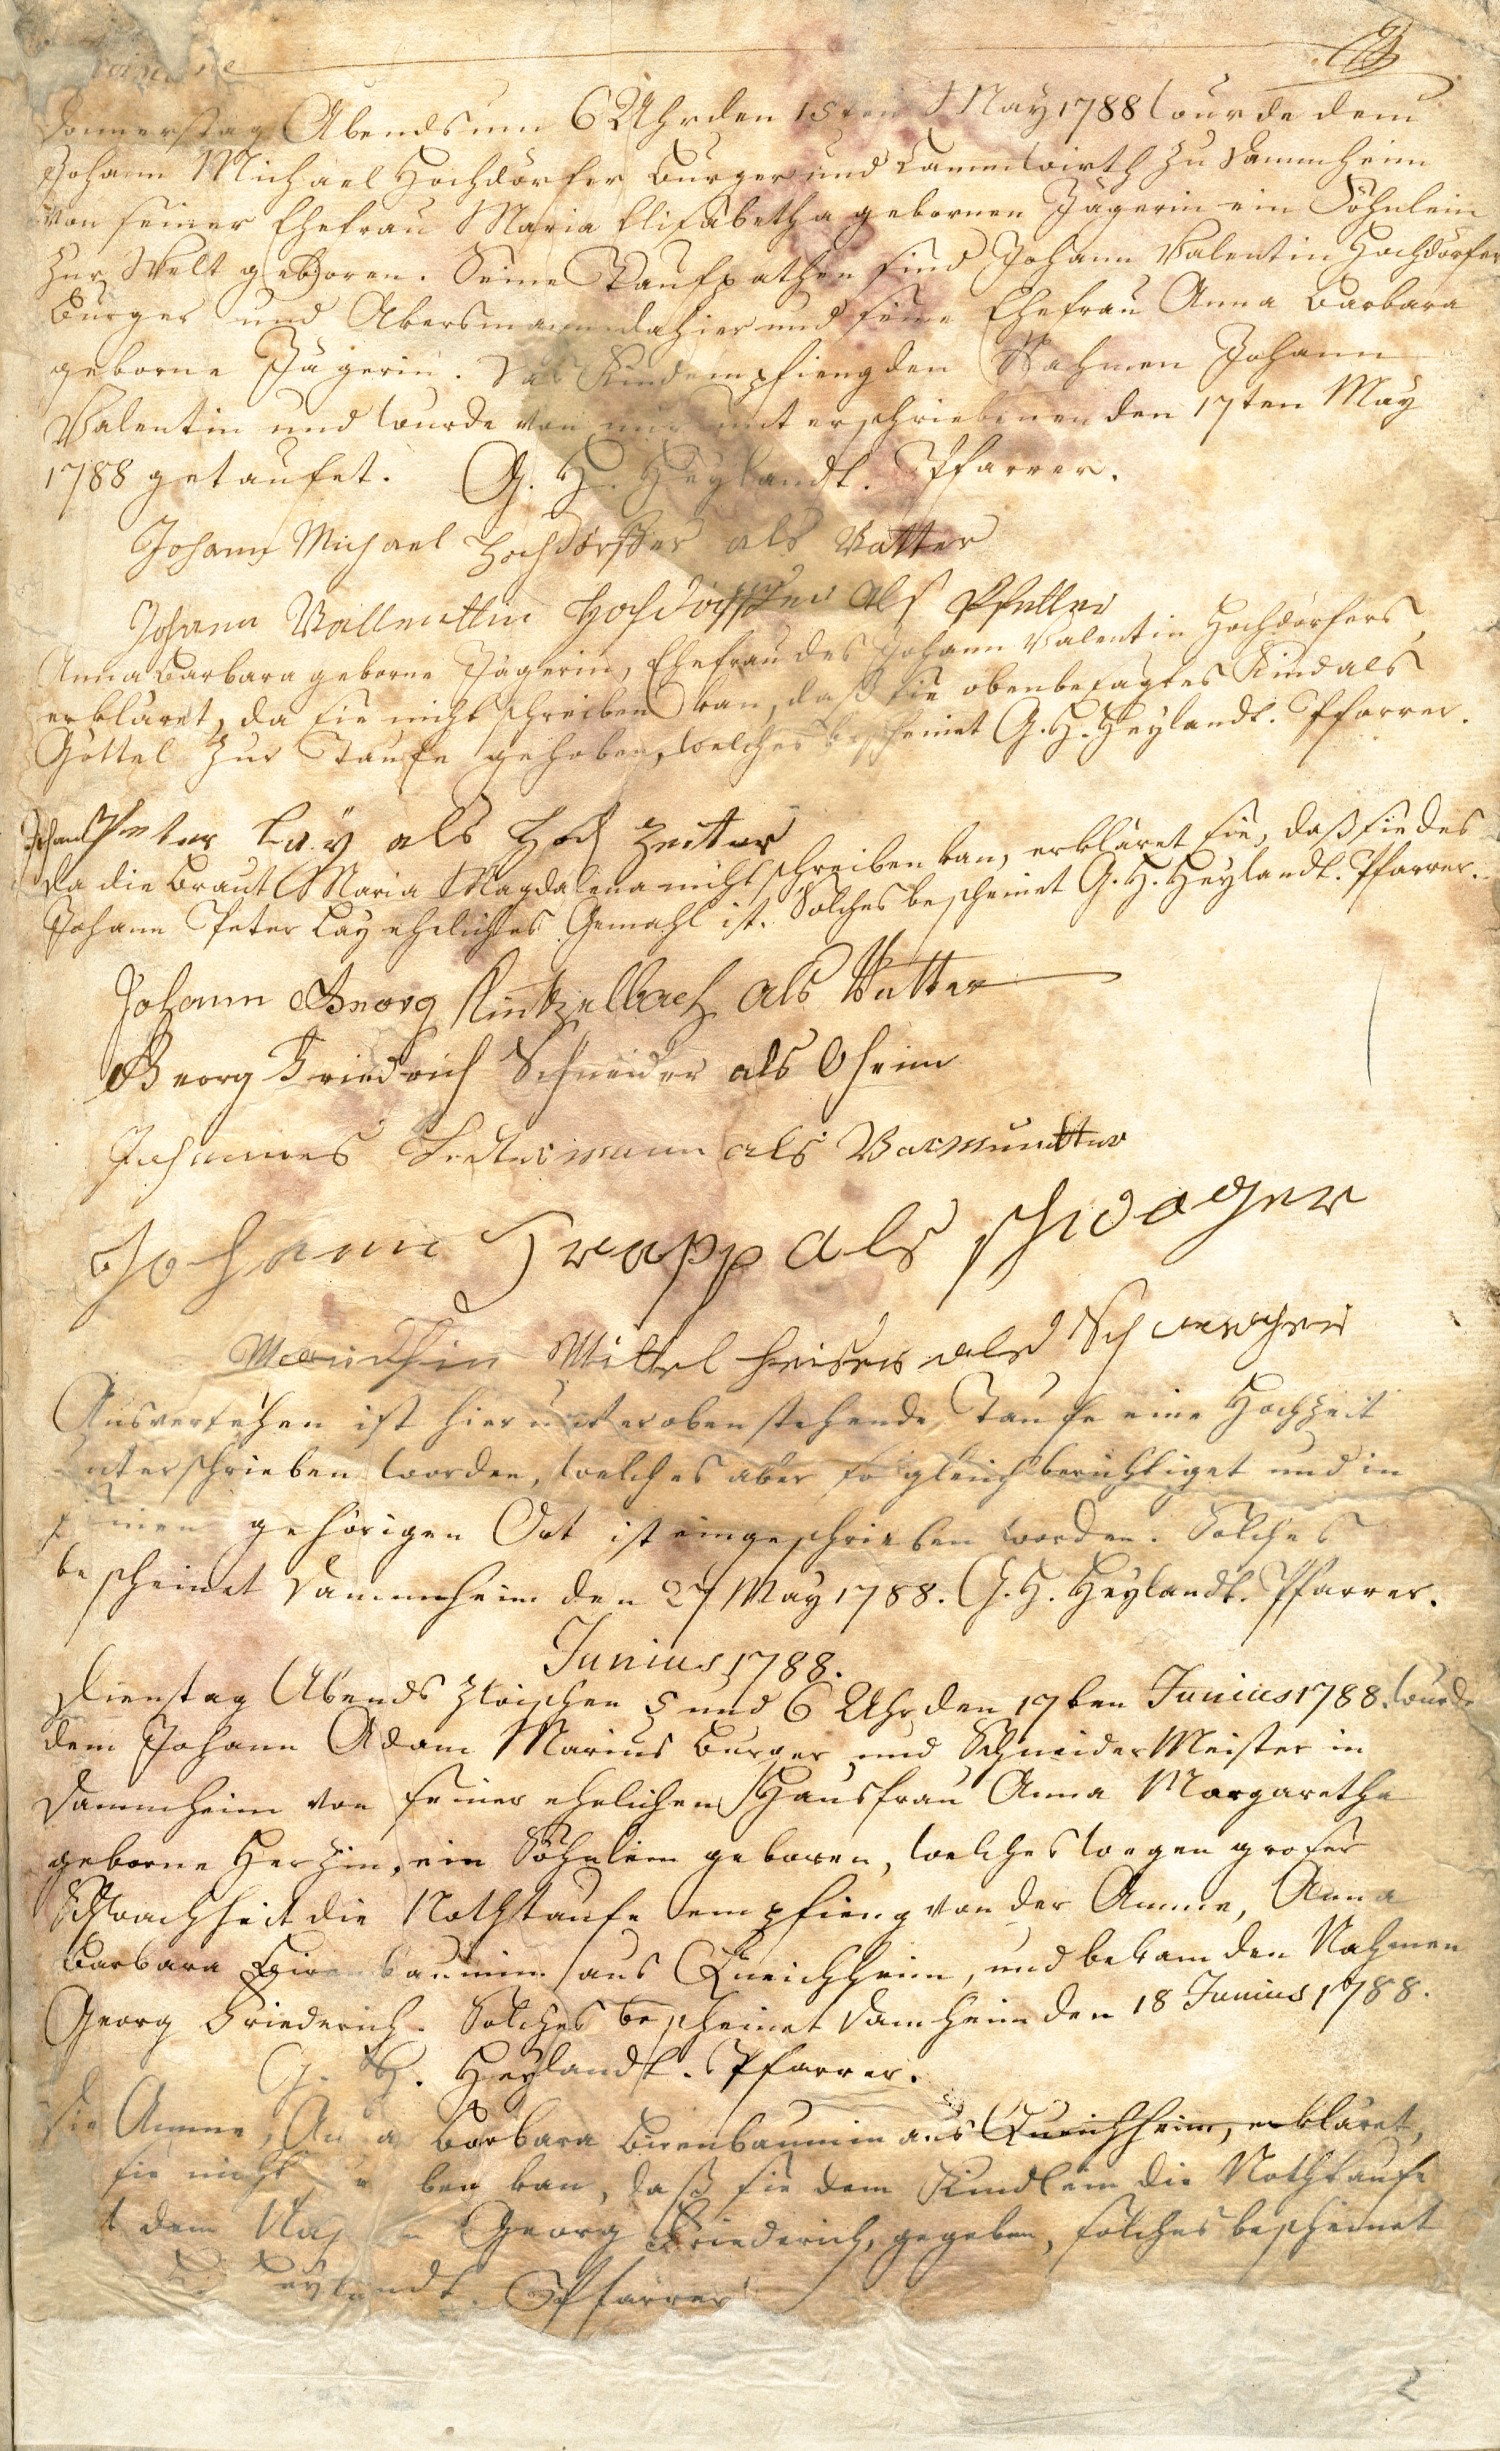 Donnerstag Abends um 6 Uhr den 15ten May 1788 wurde dem
Johann Michael Hochdörfer Burger und Lammwirth zu Dammheim
von seiner Ehefrau Maria Elisabetha gebornen Jägerin ein Söhnlein
zur Welt geboren. Seine Taufpathen sind Johann Valentin Hochdörfer
Burger und Akersmann dahier und seine Ehefrau Anna Barbara
geborne Jägerin. Das Kind empfieng den Nahmen Johann
Valentin und wurde von mir unterschriebenen den 17ten May
1788 getaufet. G. H. Heylandt. Pfarrer.
Johann Michael Hochdörffer als Vatter
Johann Vallenttin Hochdörffer als Pfetter
Anna Barbara geborne Jägerin, Ehefrau des Johann Valentin Hochdörfers,
erkläret, da sie nicht schreiben kan, daß sie obenbesagtes Kind als
Göttel zur Taufe gehoben, welches bescheinet G. H. Heylandt. Pfarrer.
Johann Peter Lay als Hoch zeiter
Da die Braut Maria Magdalena nicht schreiben kan, erkläret sie, daß sie des
Johann Peter Lay ehelichtes Gemahl ist. Solches bescheinet G. H. Heylandt. Pfarrer.
Johann Georg Kintzelbach als Vatter
Georg Friedrich Schneider als Oheim
Johannes als Vormundter
Johann Trapp als schwager
Mittel heiser als Schwager
Aus versehen ist hier unter obenstehende Taufe eine Hochzeit
unterschrieben worden, welches aber so gleich berichtiget und in
seinen gehörigen Ort ist eingeschrieben worden. Solches
bescheinet Dammheim den 27 May 1788. G. H. Heylandt. Pfarrer.
Junius 1788.
Dienstag Abends zwischen 5 und 6 Uhr den 17ten Junius 1788. wurde
dem Johann Adam Marius Burger und Schneider Meister in
Dammheim von seiner ehelichen Hausfrau Anna Margaretha
geborne Herzin, ein Söhnlein geboren, welches wegen groser
Schwachheit die Nothtaufe empfieng von der Amme, Anna
Barbara Birenbaumin aus Queichheim, und bekam den Nahmen
Georg Friederich. Solches bescheinet Damheim den 18 Junius 1788.
G. H. Heylandt. Pfarrer.
Die Amme, Anna Barbara Birenbaumin aus Queichheim, erkläret,
sie nicht ben kan, daß sie dem Kindlein die Nothtaufe
t dem Nah n Georg Friederich, gegeben, solches bescheinet
eylandt. Pfarrer
2